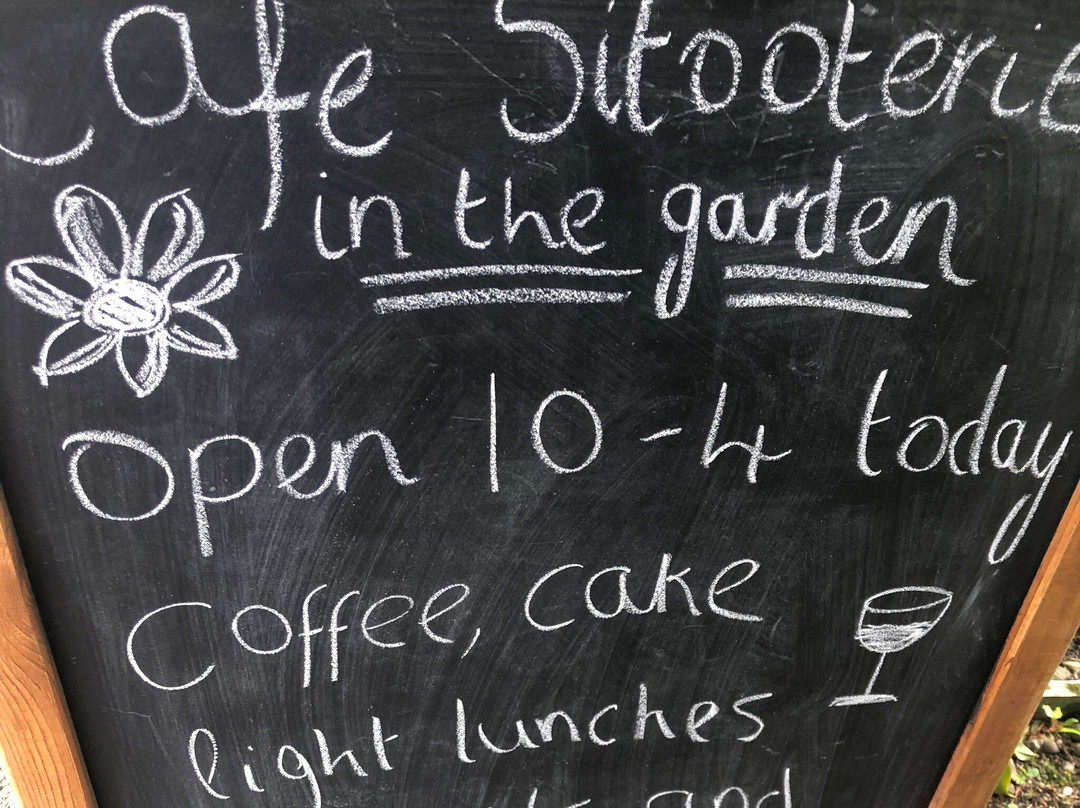 Cafe Sitooterie
in the garden
Open 10-4 today
Coffee, cake
light lunches
and